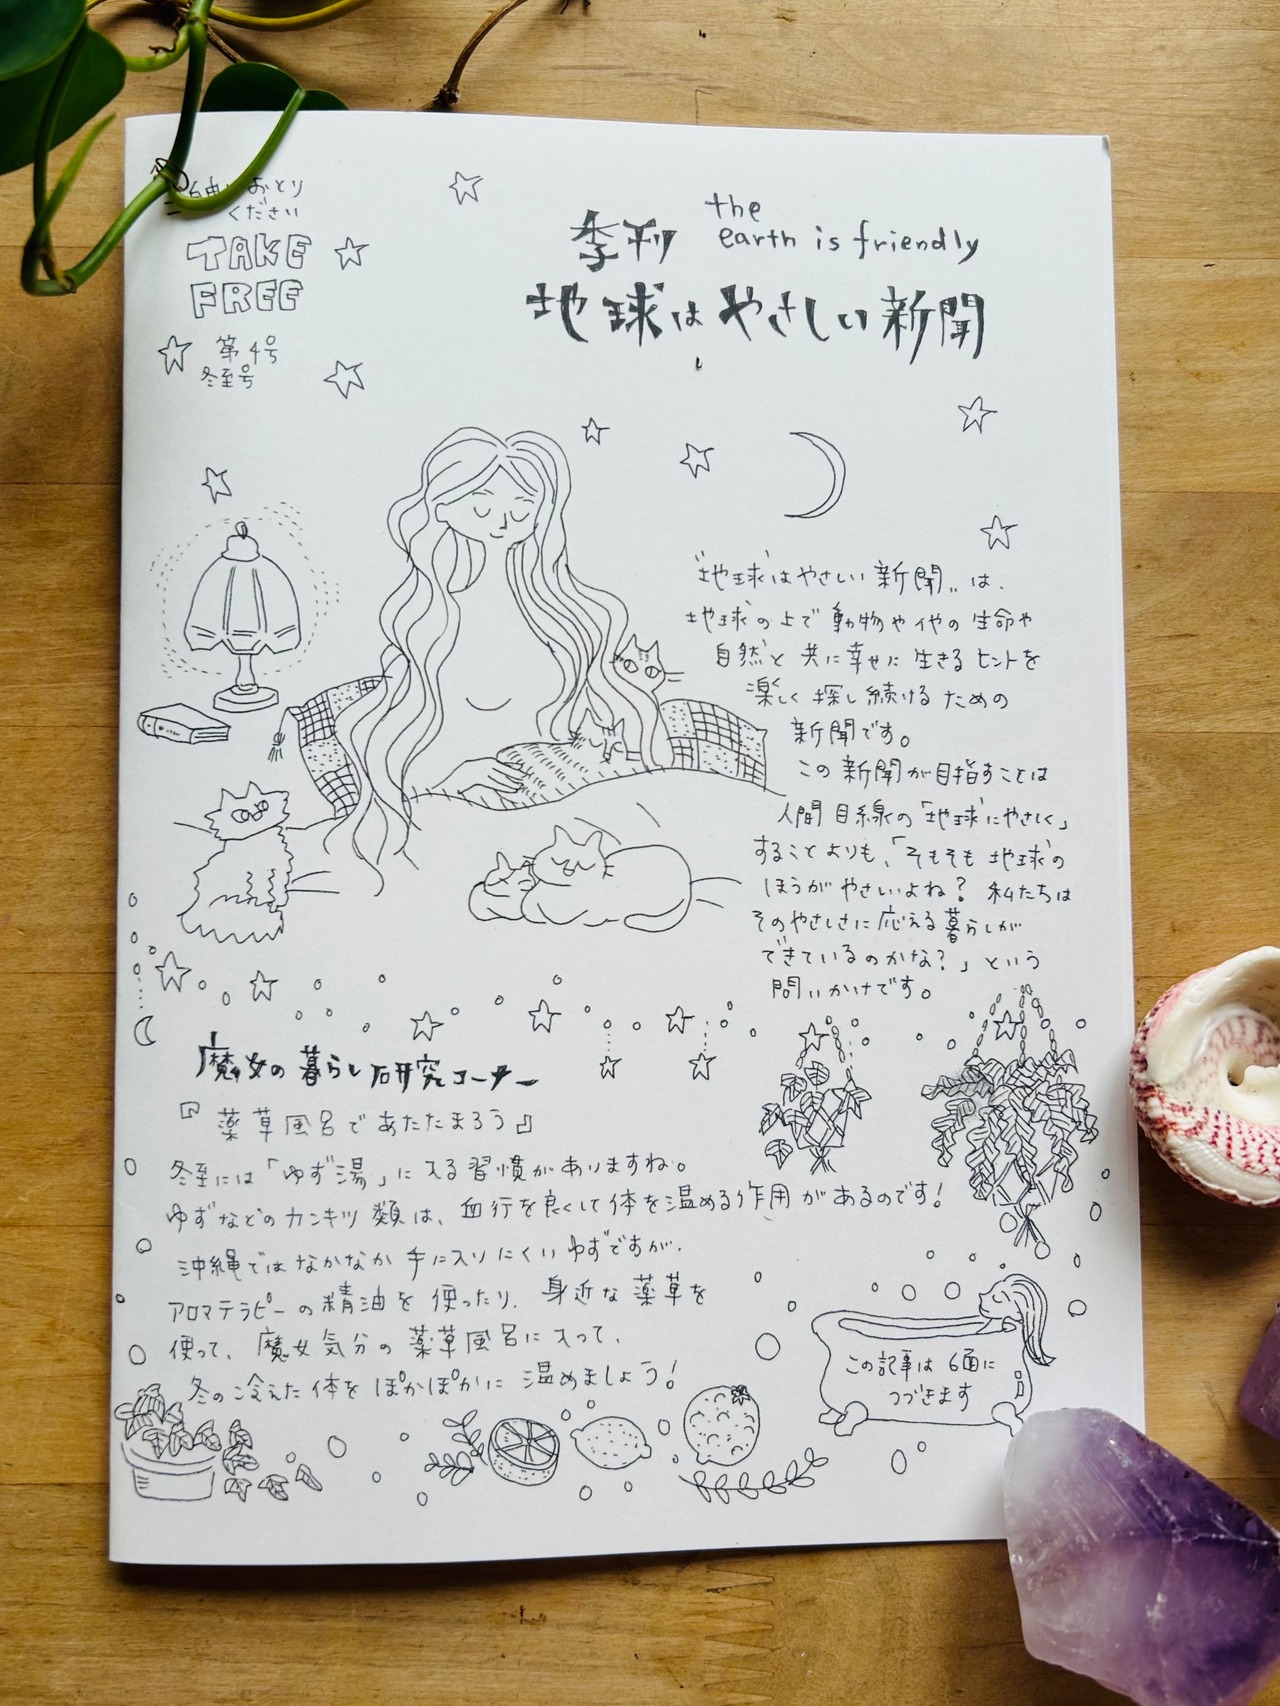 おとり
ください
TAKE
FREE
第4号
冬至号
季刊
the
earth is friendly
地球はやさしい新聞
“地球はやさしい新聞„は、
地球の上で動物や他の生命や
自然と共に幸せに生きるヒントを
楽しく探し続けるための
新聞です。
この新聞が目指すことは
人間目線の「地球にやさしく」
することよりも、「そもそも地球の
ほうがやさしいよね？私たちは
そのやさしさに応える暮らしが
できているのかな？」という
問いかけです。
魔女の暮らし研究コーナー
『薬草風呂であたたまろう』
冬至には「ゆず湯」に入る習慣がありますね。
ゆずなどのカンキツ類は、血行を良くして体を温める作用があるのです！
沖縄ではなかなか手に入りにくいゆずですが、
アロマテラピーの精油を使ったり、身近な薬草を
使って、魔女気分の薬草風呂に入って、
冬の冷えた体をぽかぽかに温めましょう！
この記事は6面に
つづきます